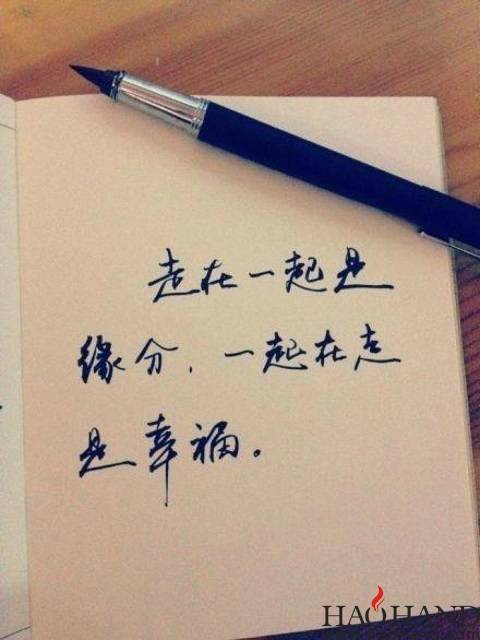 走在一起是
缘分，一起在走
是幸福。
HAOHAND